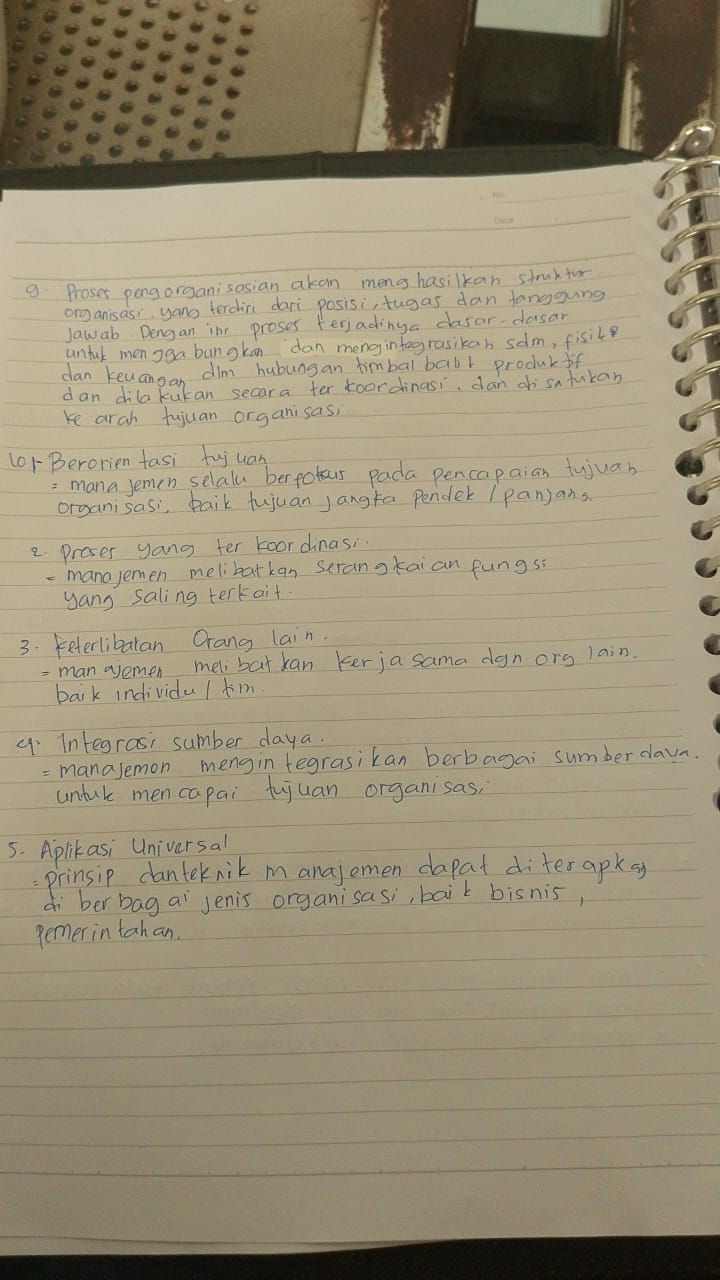 No.
Date
9. Proses pengorganisasian akan menghasilkan struktur
organisasi, yang terdiri dari posisi, tugas dan tanggung
jawab. Dengan ini proses terjadinya dasar-dasar
untuk menggabungkan dan mengintegrasikan sdm, fisik
dan keuangan dlm hubungan timbal balik produktif
dan dilakukan secara terkoordinasi, dan disatukan
ke arah tujuan organisasi
10. 1. Berorientasi tujuan
= manajemen selalu berfokus pada pencapaian tujuan
organisasi, baik tujuan jangka pendek / panjang.
2. Proses yang terkoordinasi.
= manajemen melibatkan serangkaian fungsi
yang saling terkait.
3. Keterlibatan Orang lain.
= manajemen melibatkan kerja sama dgn org lain.
baik individu / tim.
4. Integrasi sumber daya.
= manajemen mengintegrasikan berbagai sumber daya.
untuk mencapai tujuan organisasi
5. Aplikasi Universal
= prinsip dan teknik manajemen dapat diterapkan
di berbagai jenis organisasi, baik bisnis,
pemerintahan.